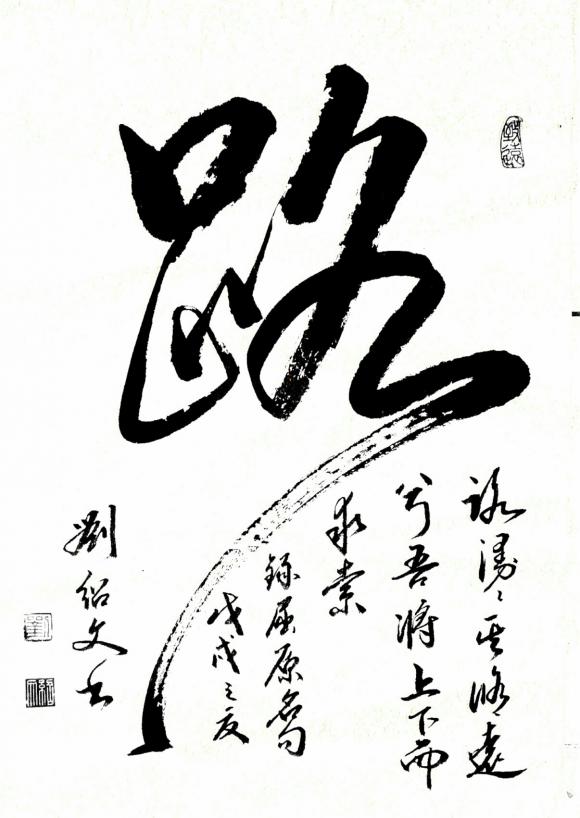 路
路漫〻其修遠
兮吾将上下而
求索
錄屈原名句
戊戌之夏
劉紹文书